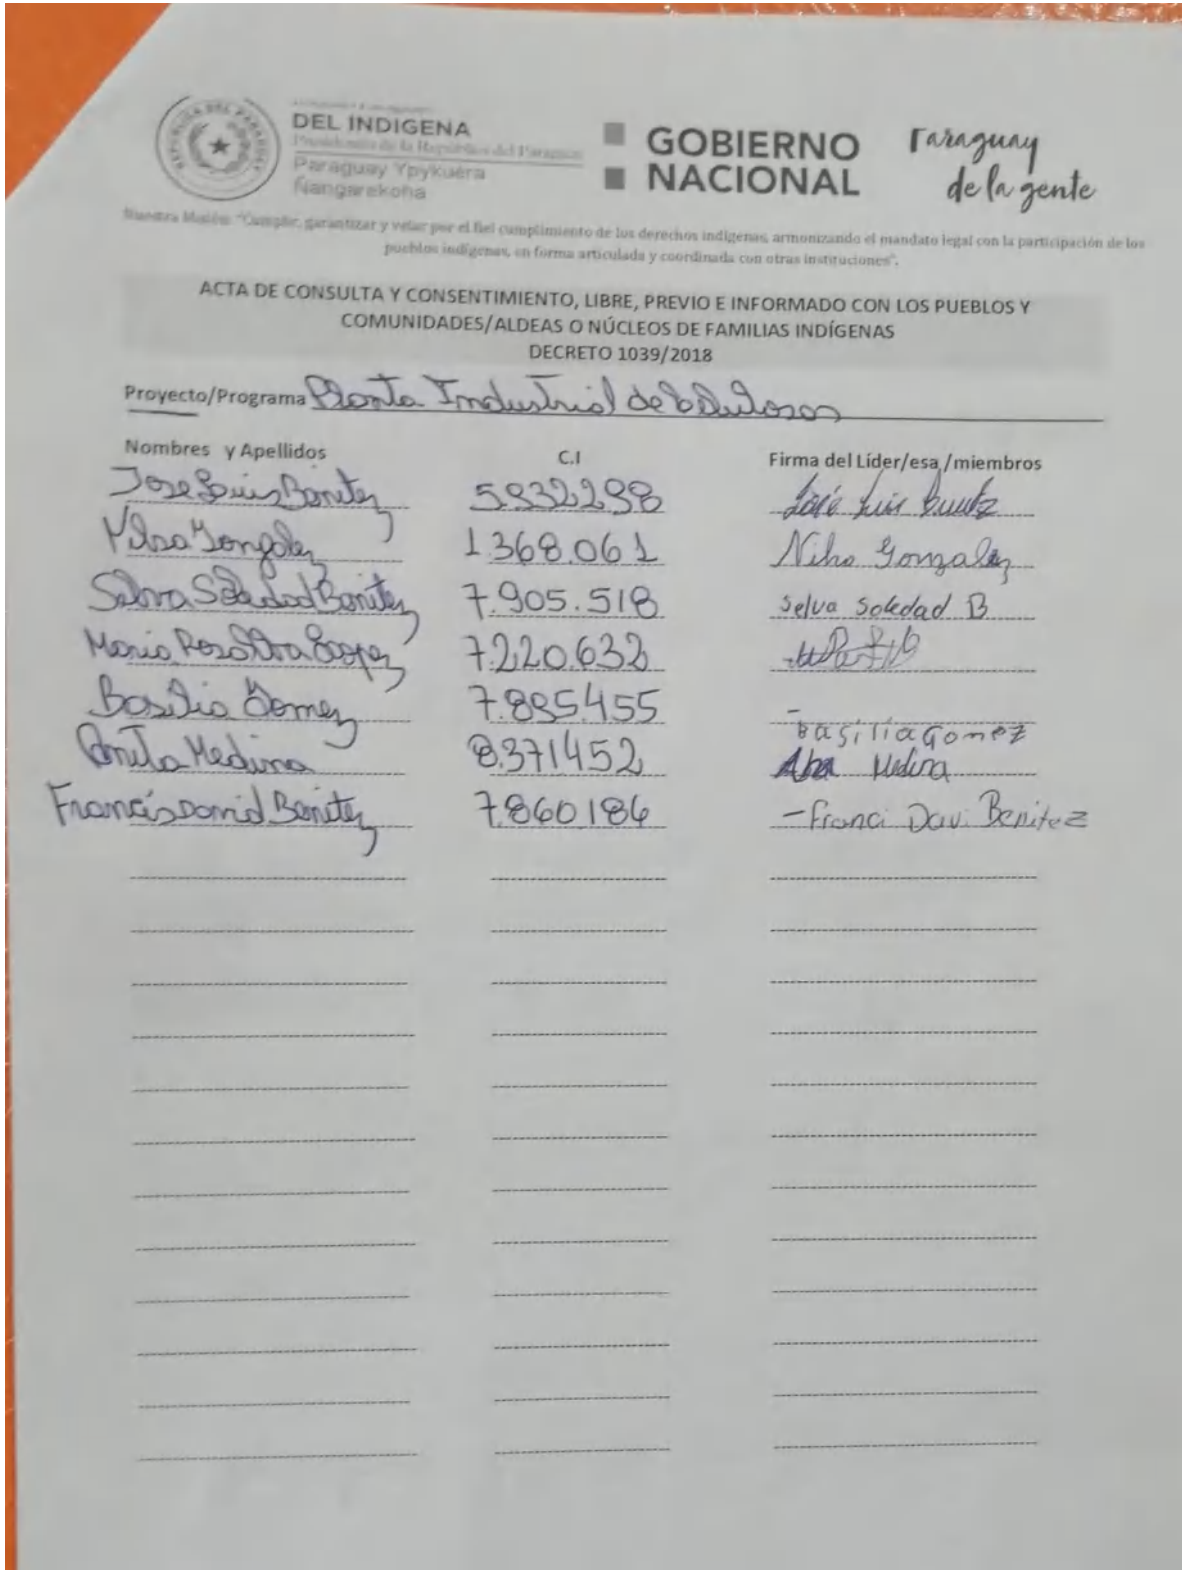 REPÚBLICA DEL PARAGUAY
DEL INDIGENA
Presidencia de la República del Paraguay
Paraguay Ypykuéra
Ñangarekoha
GOBIERNO
NACIONAL
Paraguay
de la gente
Nuestra Misión: "Cumplir, garantizar y velar por el fiel cumplimiento de los derechos indígenas, armonizando el mandato legal con la participación de los
pueblos indígenas, en forma articulada y coordinada con otras instituciones".
ACTA DE CONSULTA Y CONSENTIMIENTO, LIBRE, PREVIO E INFORMADO CON LOS PUEBLOS Y
COMUNIDADES/ALDEAS O NÚCLEOS DE FAMILIAS INDÍGENAS
DECRETO 1039/2018
Proyecto/Programa Planta Industrial de
Nombres y Apellidos C.I Firma del Líder/esa /miembros
Jose Luis Benitez 5.932298 José Luis
Gonzalez 1.368.061 Gonzalez
Selva Soledad Benitez 7.905.518 Selva Soledad B
Maria Rosa 7.220.632
Basilia Gomez 7.895.455 - Basilia Gomez
Medina 8.371452 Medina
Francis David Benitez 7.860186 - Franci Davi Benitez